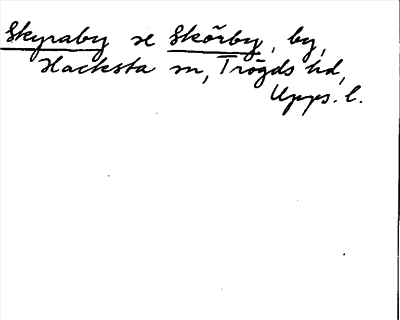 Skyraby se Skörby, by,
Hacksta sn, Trögds hd,
Upps. l.